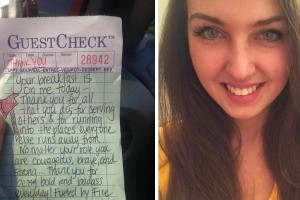 GUESTCHECK™
THANK YOU 28942
Your breakfast is
on me today -
Thank you for all
that you do; for serving
others & for running
into the places everyone
else runs away from.
No matter your role, you
are courageous, brave, and
strong. Thank you for
being bold and badass
everyday! Fueled by Fire